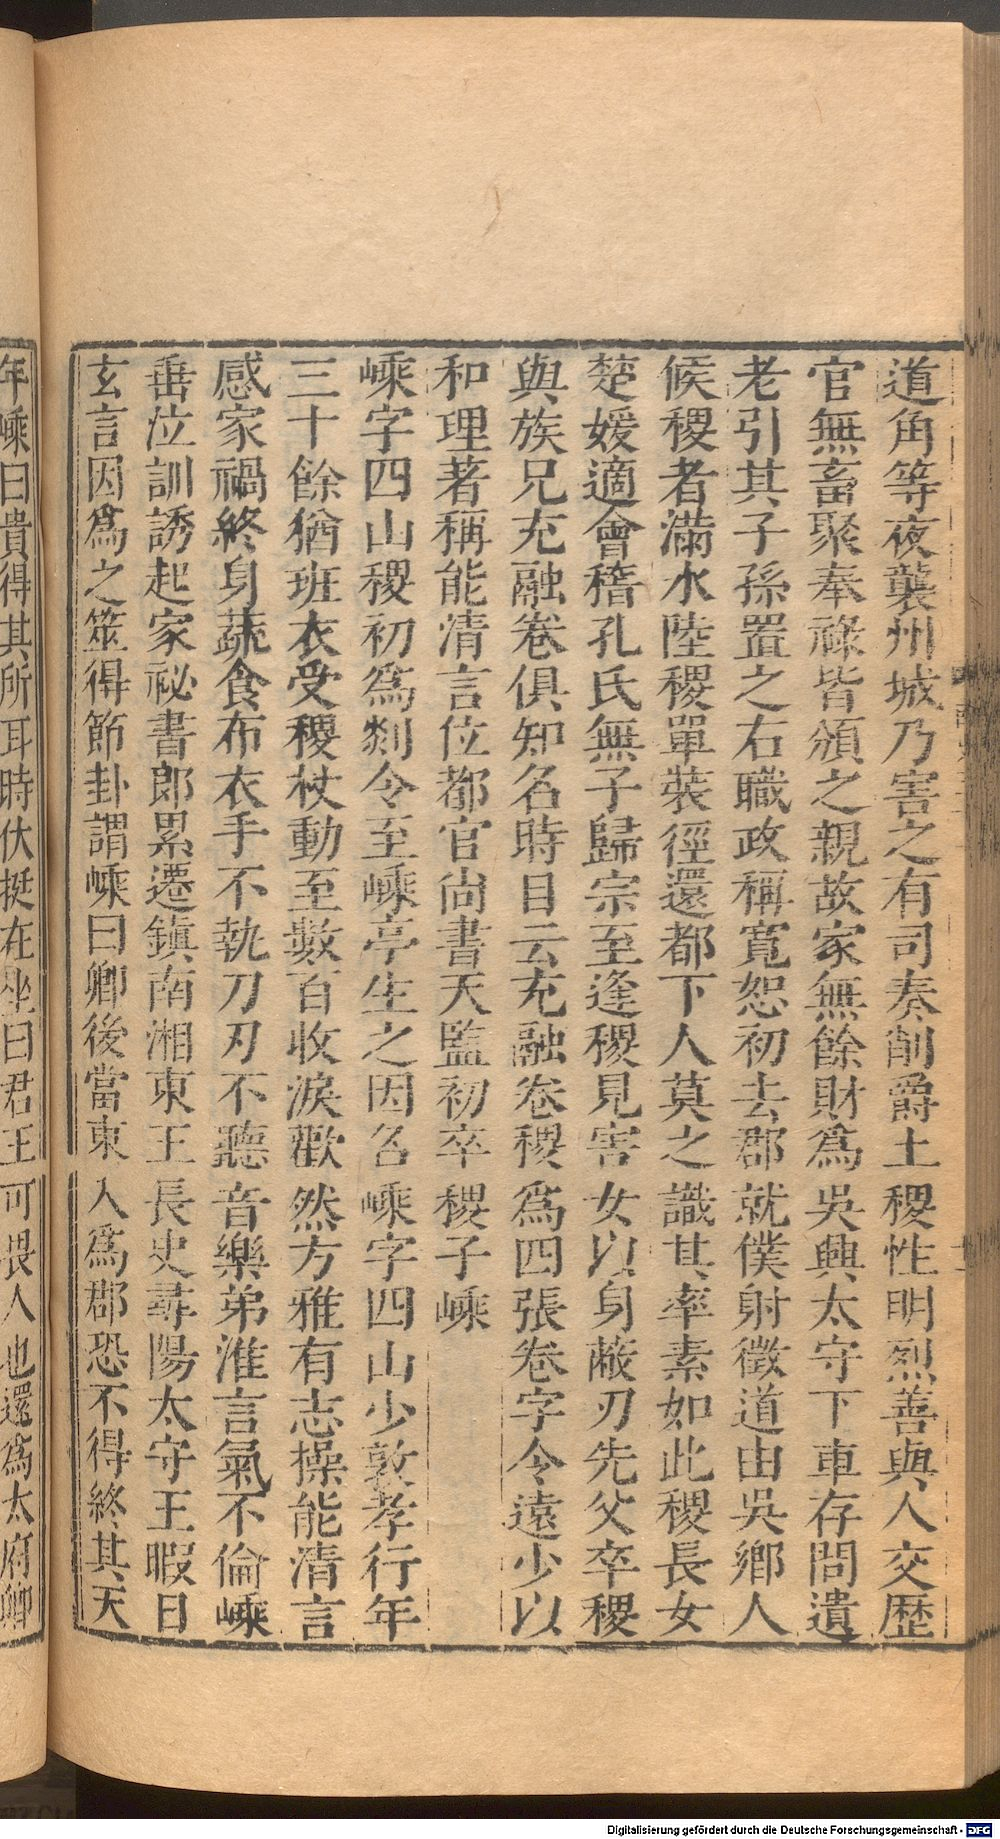 道角等夜襲州城乃害之有司奏削爵土稷性明烈善與人交歴
官無畜聚奉祿皆頒之親故家無餘財爲吳興太守下車存問遺
老引其子孫置之右職政稱寬恕初去郡就僕射徵道由吳鄉人
候稷者滿水陸稷單裝徑還都下人莫之識其率素如此稷長女
楚媛適會稽孔氏無子歸宗至逢稷見害女以身蔽刃先父卒稷
與族兄充融卷俱知名時目云充融卷稷爲四張卷字令遠少以
和理著稱能清言位都官尚書天監初卒稷子嵊
嵊字四山稷初爲剡令至嵊亭生之因名嵊字四山少敦孝行年
三十餘猶班衣受稷杖動至數百收淚歡然方雅有志操能清言
感家禍終身蔬食布衣手不執刀刃不聽音樂弟淮言氣不倫嵊
垂泣訓誘起家祕書郎累遷鎮南湘東王長史尋陽太守王暇日
玄言因爲之筮得節卦謂嵊曰卿後當東入爲郡恐不得終其天
年嵊曰貴得其所耳時伏挺在坐曰君王可畏人也還爲太府卿
Digitalisierung gefördert durch die Deutsche Forschungsgemeinschaft - DFG